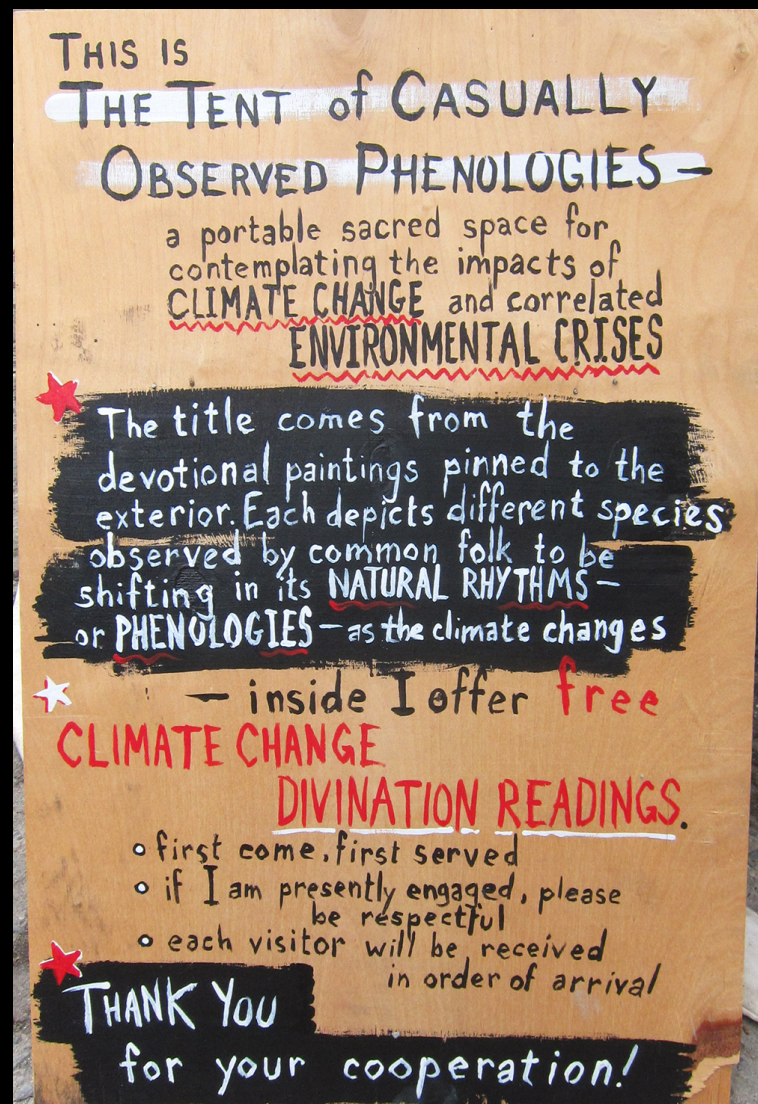 THIS IS
THE TENT of CASUALLY
OBSERVED PHENOLOGIES—
a portable sacred space for
contemplating the impacts of
CLIMATE CHANGE and correlated
ENVIRONMENTAL CRISES
The title comes from the
devotional paintings pinned to the
exterior. Each depicts different species
observed by common folk to be
shifting in its NATURAL RHYTHMS—
or PHENOLOGIES—as the climate changes
— inside I offer free
CLIMATE CHANGE
DIVINATION READINGS.
• first come, first served
• if I am presently engaged, please
be respectful
• each visitor will be received
in order of arrival
THANK YOU
for your cooperation!